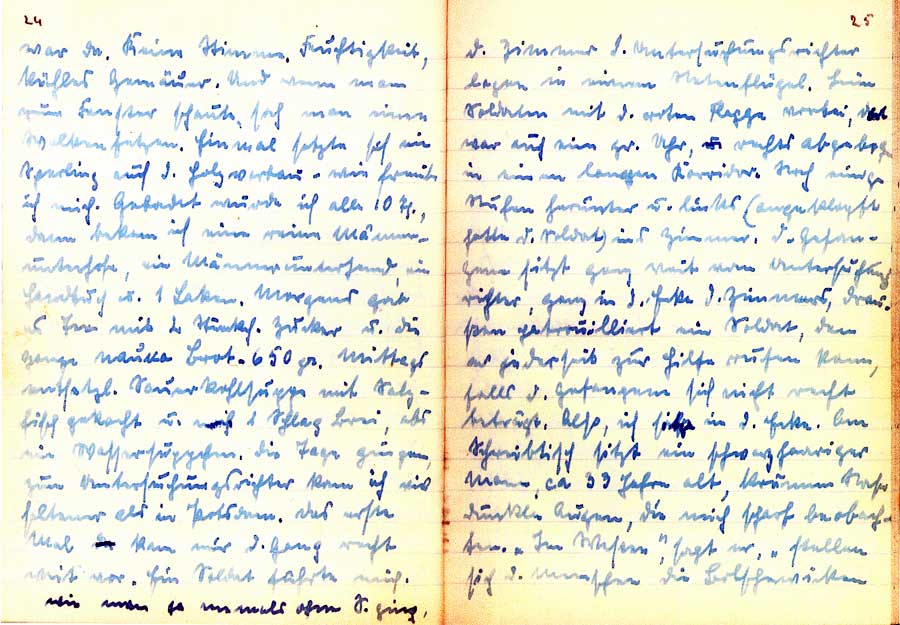 24
war da. Keine Stimme. Feuchtigkeit,
kühles Gemäuer. Und wenn man
zum Fenster schaute, sah man einen
Wolkenfetzen. Einmal setzte sich ein
Sperling auf d. Holzverbau - wie freute
ich mich. Gebadet wurde ich alle 10 T.,
dann bekam ich eine reine Männer-
unterhose, ein Männerunterhemd, ein
Handtuch u. 1 Laken. Morgens gab
es Tee mit 2 Stückch. Zucker u. die
ganze Brot - 650 gr. Mittags
entsetzl. Sauerkohlsuppe mit Salz-
fisch gekocht u. 1 Schlag Brei, abs
ein Wassersüppchen. Die Tage gingen,
zum Untersuchungsrichter kam ich viel
seltener als in Potsdam. Das erste
Mal kam mir d. Gang recht
weit vor. Ein Soldat führte mich.
wie man ja niemals ohne S. ging,
25
D. Zimmer d. Untersuchungsrichter
lagen in einem Seitenflügel. Beim
Soldaten mit d. roten Kappe vorbei, dort
war auch eine gr. Uhr, u. rechts abgebogen
in einen langen Korridor. Noch einige
Stufen herunter u. links (angeklopft
hatte d. Soldat) ins Zimmer. D. Gefan-
gene sitzt ganz weit vom Untersuchungs
richter, ganz in d. Ecke d. Zimmers, drau-
ßen patrouilliert ein Soldat, den
er jederzeit zur Hilfe rufen kann,
falls d. Gefangene sich nicht recht
beträgt. Also, ich sitze in d. Ecke. Am
Schreibtisch sitzt ein schwarzhaariger
Mann, ca 33 Jahre alt, krumme Nase,
dunkle Augen, die mich scharf beobach-
ten. „Im Westen", sagt er, „stellen
sich d. Menschen die Bolschewiken